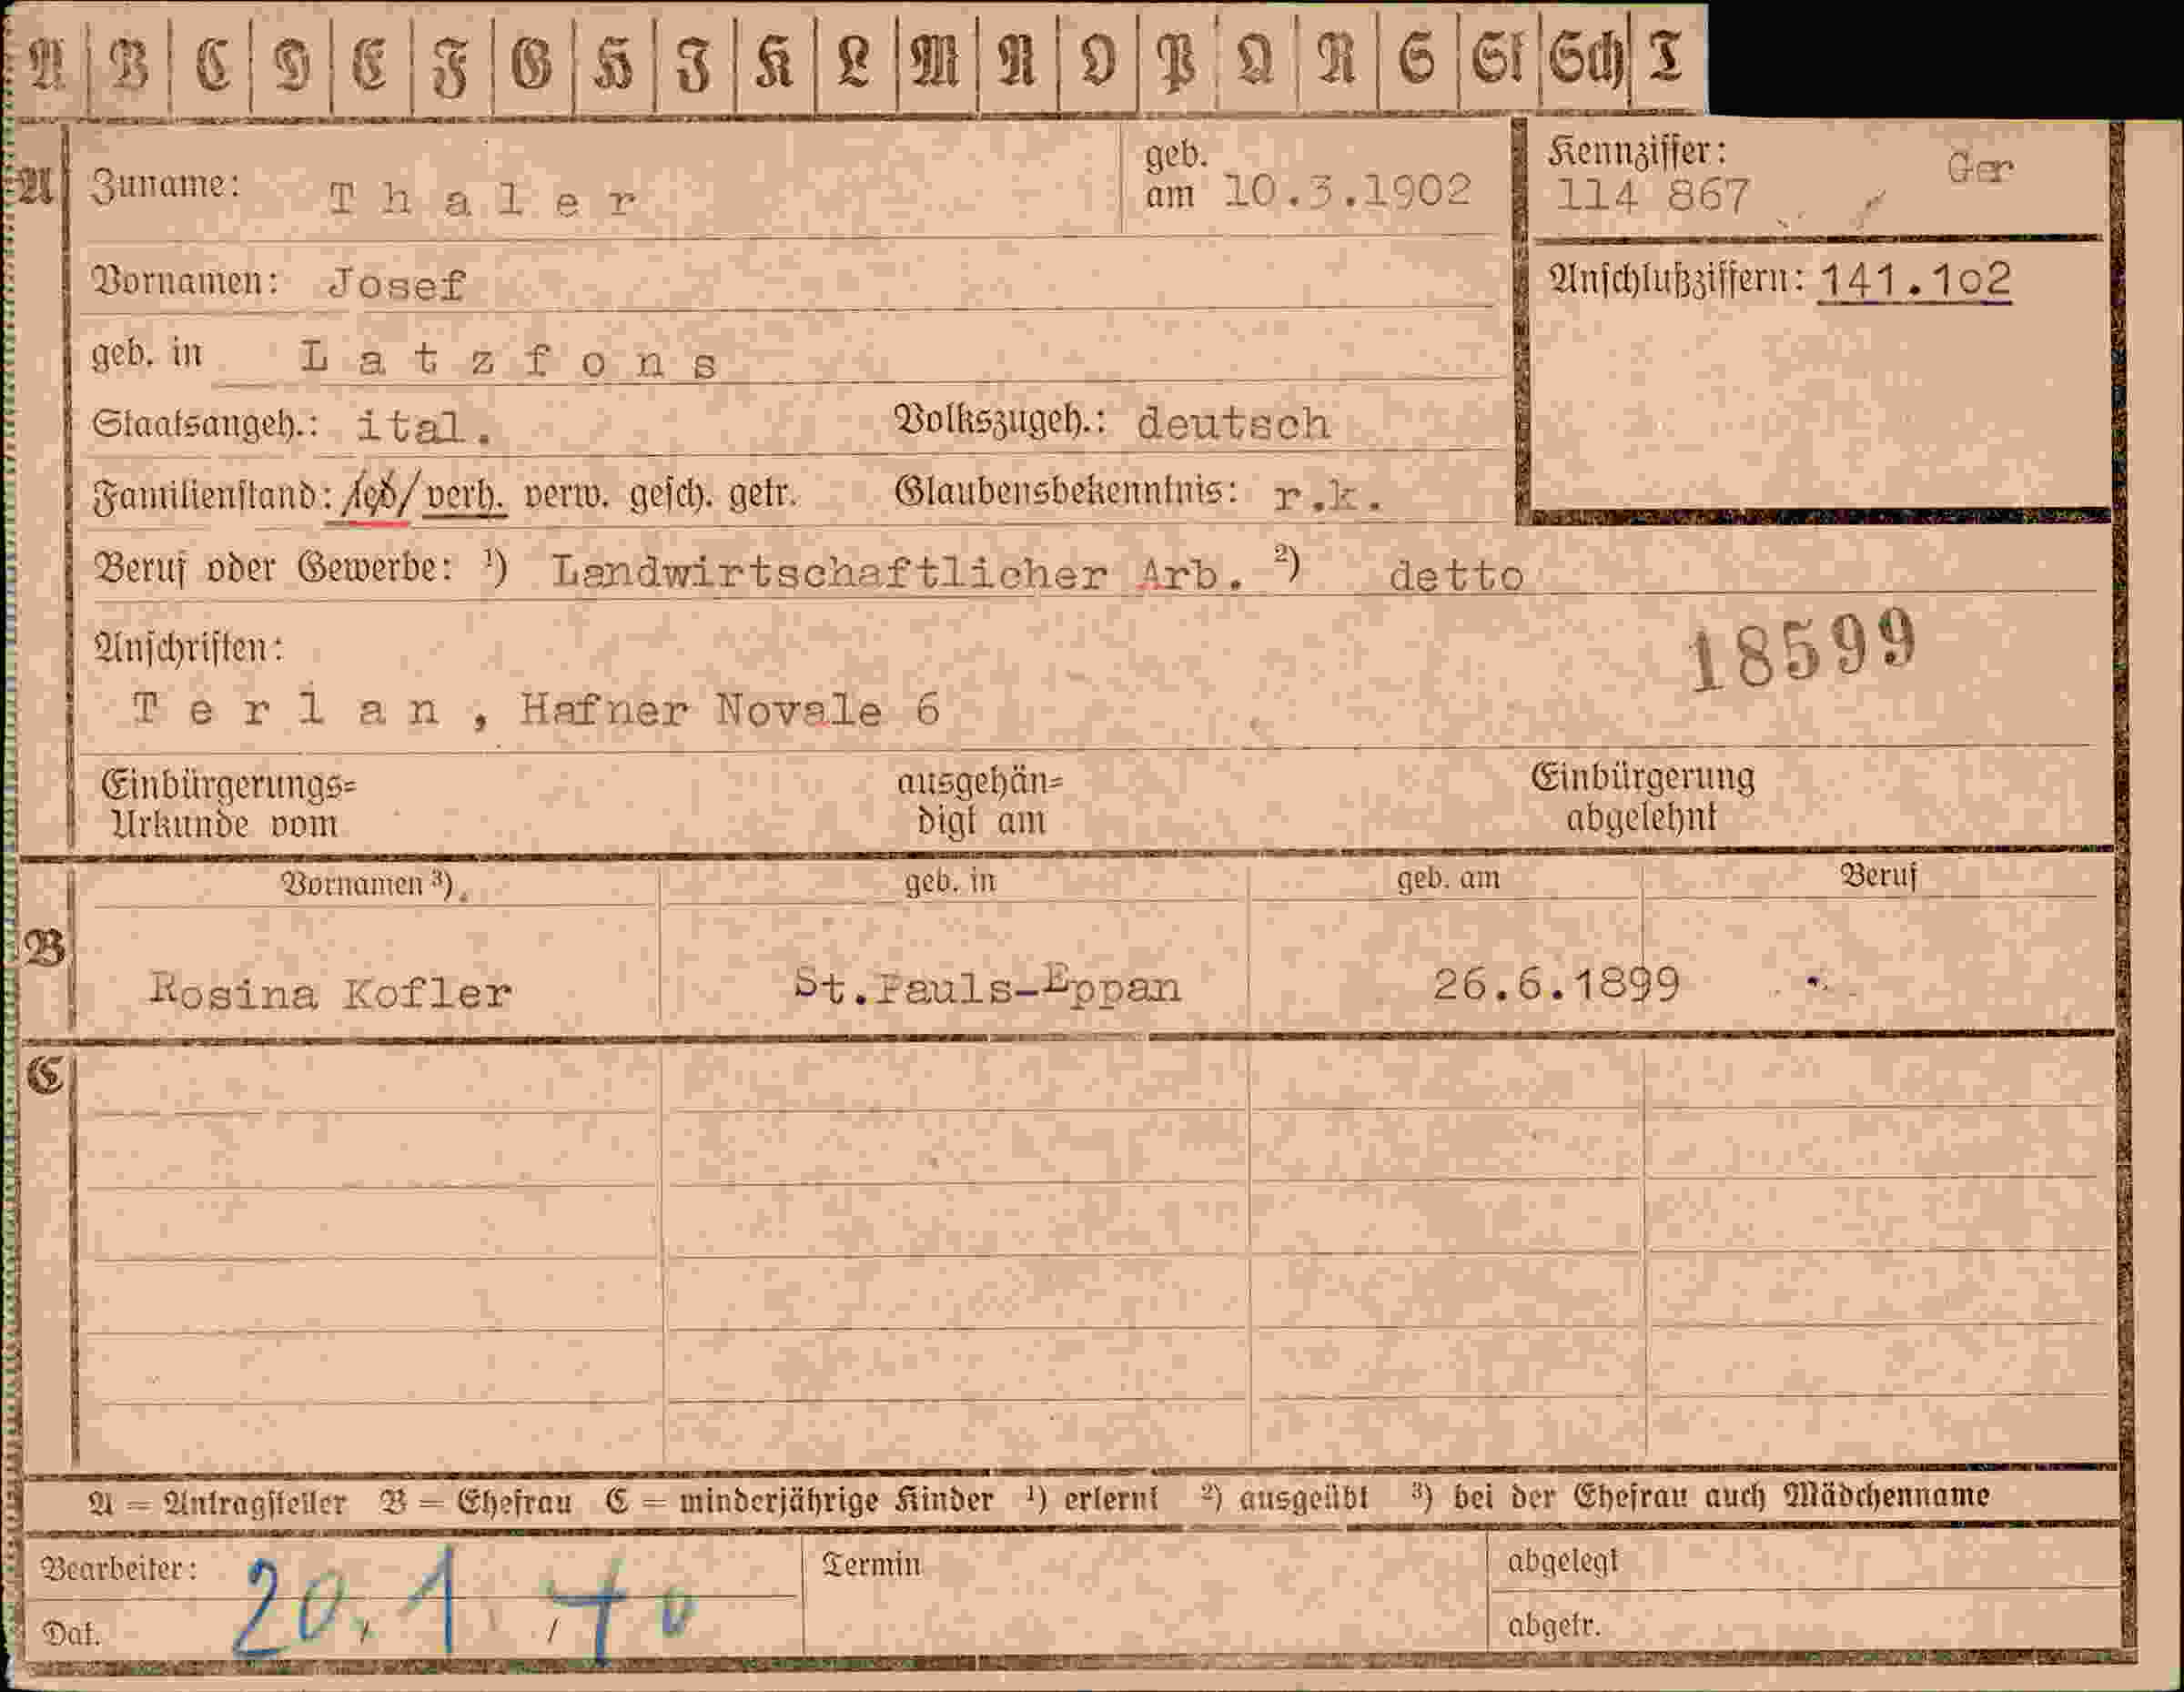 A B C D E F G H I K L M N O P Q R S St Sch T
A Zuname: Thaler geb. am 10.3.1902 Kennziffer: 114 867 Ger
Vornamen: Josef Anschlußziffern: 141.1o2
geb. in Latzfons
Staatsangeh.: ital. Volkszugeh.: deutsch
Familienstand: led. verh. verw. gesch. getr. Glaubensbekenntnis: r.k.
Beruf oder Gewerbe: ¹) Landwirtschaftlicher Arb. ²) detto
Anschriften: 18599
Terlan, Hafner Novale 6
Einbürgerungs= Urkunde vom ausgehän= digt am Einbürgerung abgelehnt
Vornamen ³) geb. in geb. am Beruf
B Rosina Kofler St.Pauls-Eppan 26.6.1899
C
A = Antragsteller B = Ehefrau C = minderjährige Kinder ¹) erlernt ²) ausgeübt ³) bei der Ehefrau auch Mädchenname
Bearbeiter: Termin abgelegt
Dat. 20.1.40 abgetr.